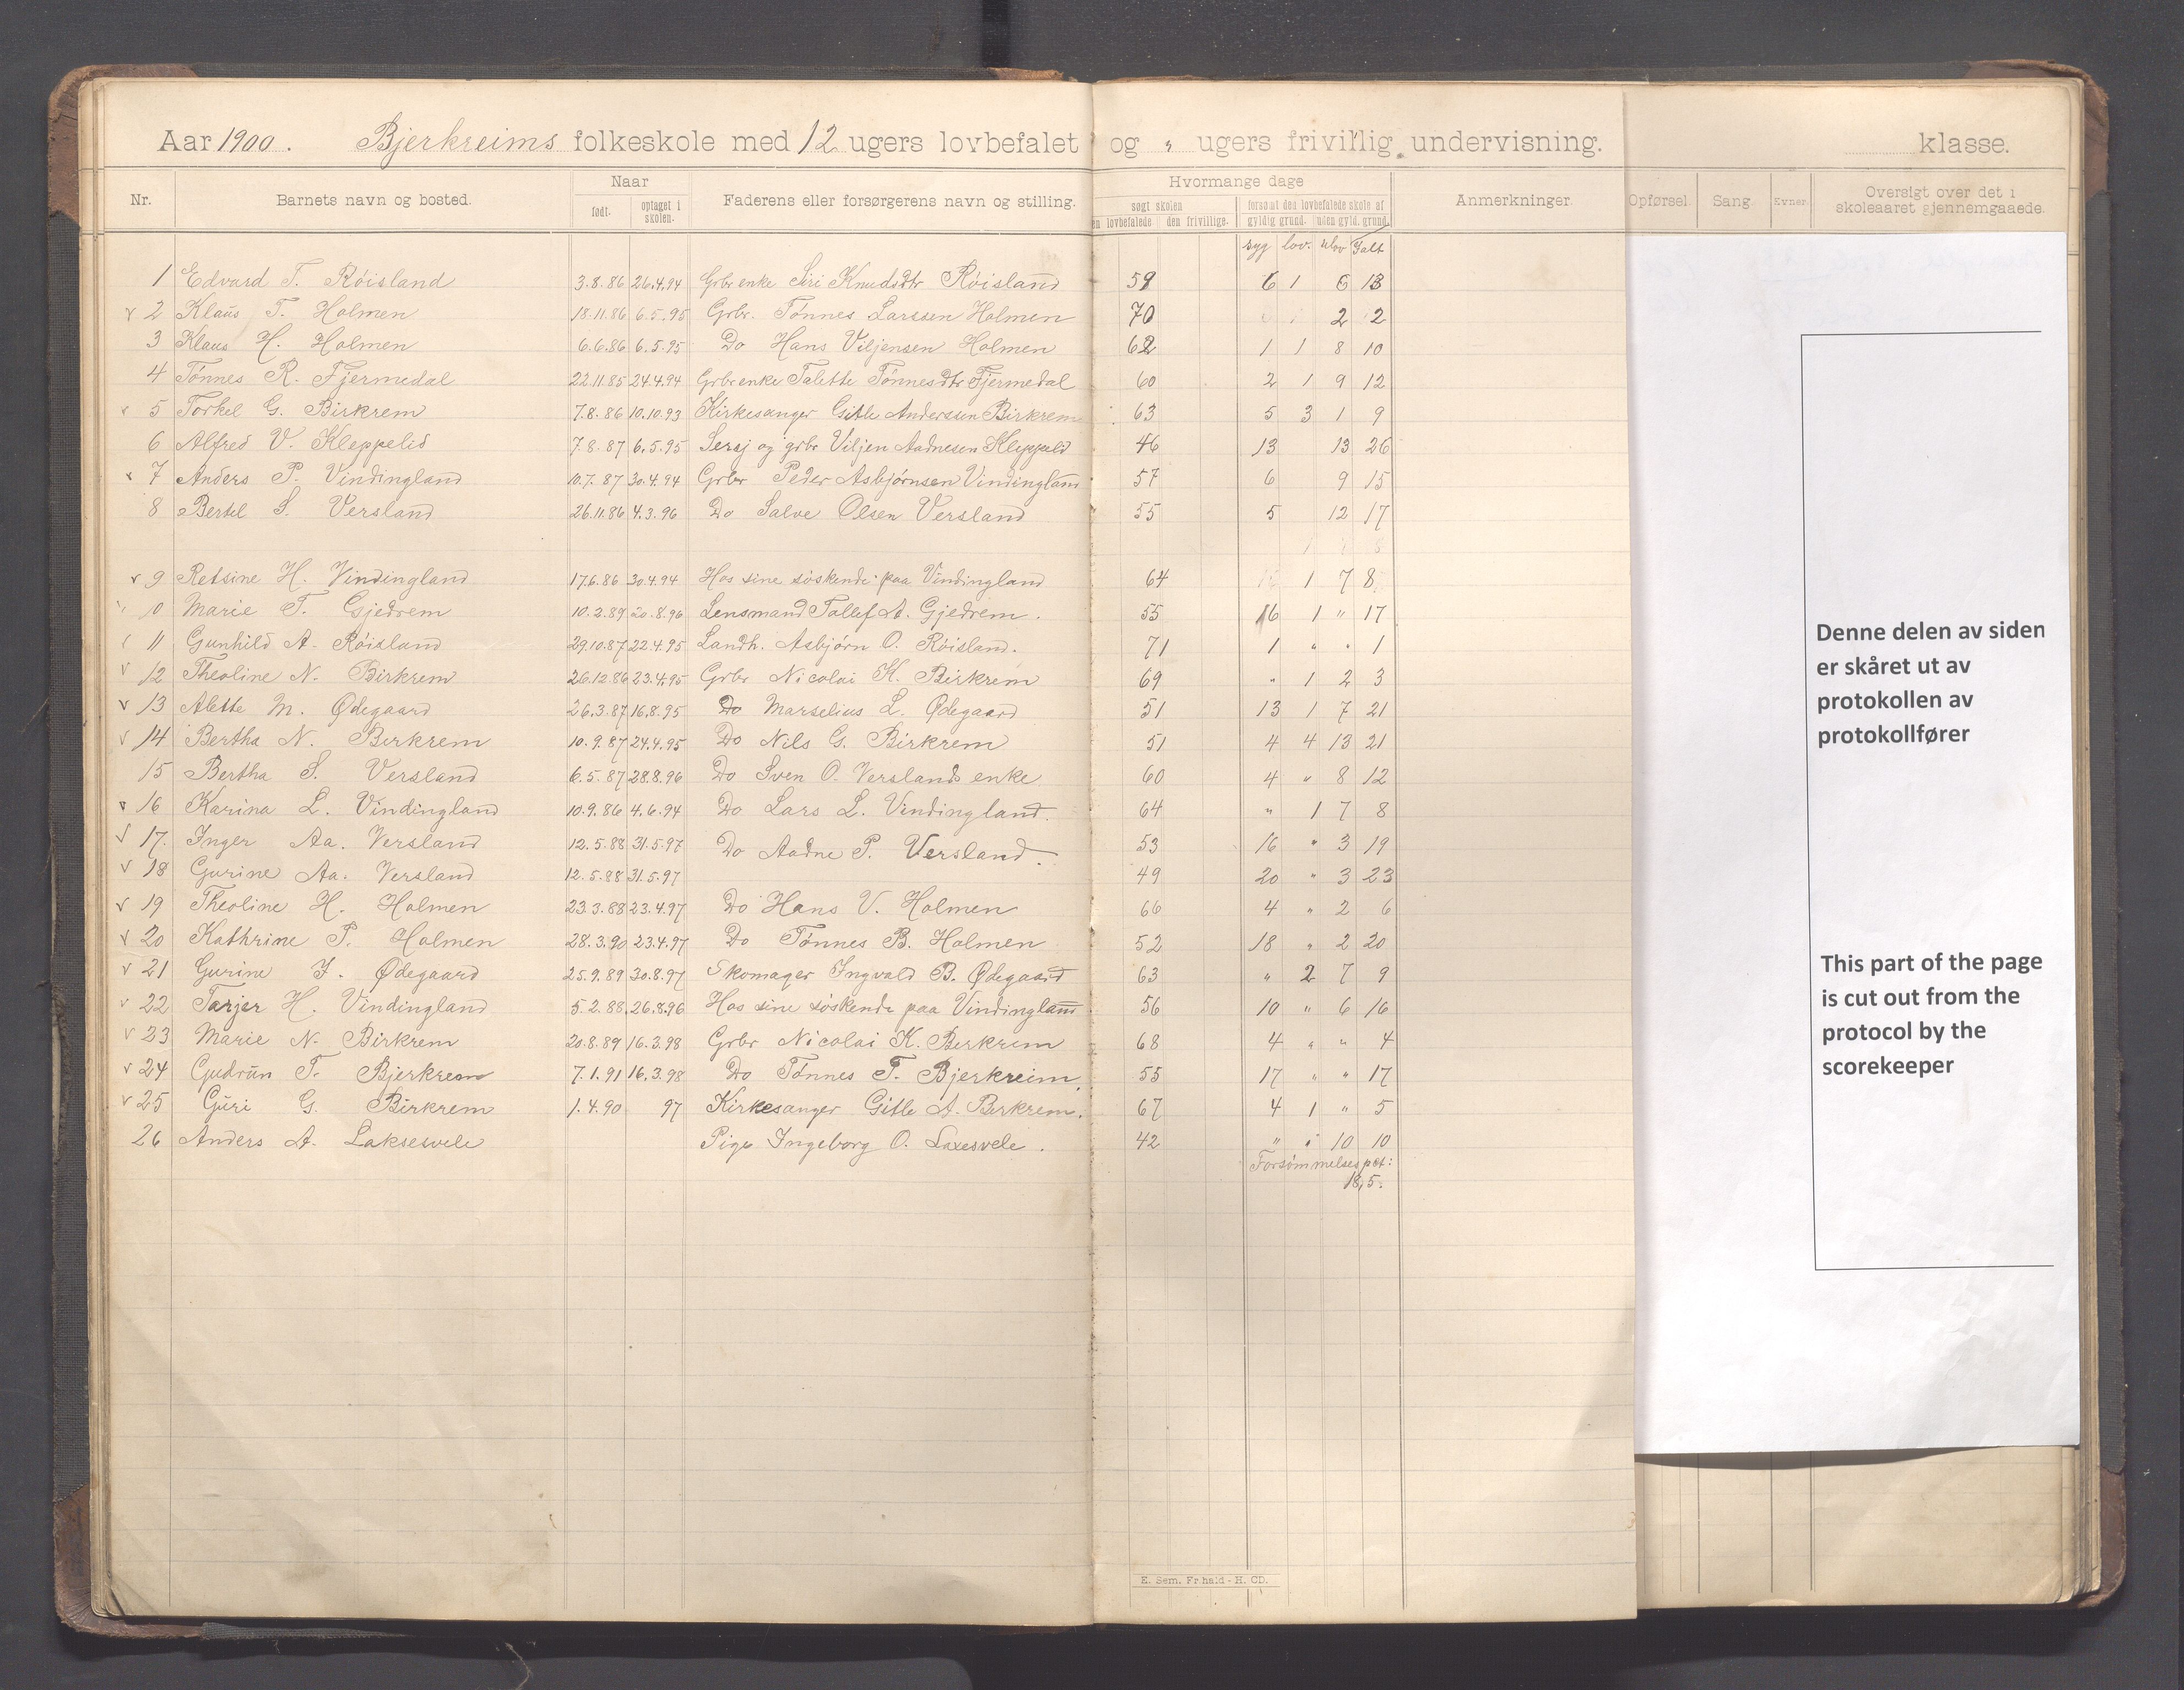 Aar 1900. Bjerkreims folkeskole med 12 ugers lovbefalet og " ugers frivillig undervisning. klasse.
Nr. Barnets navn og bosted. Naar født. optaget i skolen. Faderens eller forsørgerens navn og stilling. Hvormange dage søgt skolen en lovbefalede den frivillige. forsømt den lovbefalede skole af gyldig grund. uden gyld. grund. Anmerkninger. Opførsel. Sang. Evner. Oversigt over det i skoleaaret gjennemgaaede.
syg lov. ulov Ialt
1 Edvard T. Röisland 3.8.86 26.4.94 Grbr enke Siri Knudsdtr Röisland 59 6 1 6 13
2 Klaus T. Holmen 18.11.86 6.5.95 Grbr. Tönnes Larssen Holmen 70 2 2
3 Klaus H. Holmen 6.6.86 6.5.95 Do Hans Viljensen Holmen 62 1 1 8 10
4 Tönnes R. Fjermedal 22.11.85 24.4.94 Grbr enke Talette Tönnesdtr Fjermedal 60 2 1 9 12
5 Torkel G. Birkrem 7.8.86 10.10.93 Kirkesanger Gitle Anderssen Birkrem 63 5 3 1 9
6 Alfred V. Kleppelid 7.8.87 6.5.95 Sersj og grbr Viljen Aadnesen Kleppelid 46 13 13 26
7 Anders P. Vindingland 10.7.87 30.4.94 Grbr Peder Asbjörnsen Vindingland 57 6 9 15
8 Bertel S. Versland 26.11.86 4.3.96 Do Salve Olsen Versland 55 5 12 17
9 Retsine H. Vindingland 17.6.86 30.4.94 Hos sine söskende paa Vindingland 64 1 7 8
0 Marie T. Gjedrem 10.2.89 20.8.96 Lensmand Tollef A. Gjedrem. 55 16 1 " 17
11 Gunhild A. Röisland 29.10.87 22.4.95 Landh. Asbjörn O. Röisland. 71 1 " " 1
12 Theoline N. Birkrem 26.12.86 23.4.95 Grbr Nicolai K. Birkrem 69 " 1 2 3
13 Alette M. Ødegaard 26.3.87 16.8.95 Do Marselius L. Ødegaard 51 13 1 7 21
14 Bertha N. Birkrem 10.9.87 24.4.95 Do Nils G. Birkrem 51 4 4 13 21
15 Bertha S. Versland 6.5.87 28.8.96 Do Sven O. Verslands enke 60 4 " 8 12
16 Karina L. Vindingland 10.9.86 4.6.94 Do Lars L. Vindingland. 64 " 1 7 8
17. Inger Aa. Versland 12.5.88 31.5.97 Do Aadne P. Versland. 53 16 " 3 19
18 Gurine Aa. Versland 12.5.88 31.5.97 49 20 " 3 23
19 Theoline H. Holmen 23.3.88 23.4.97 Do Hans V. Holmen 66 4 " 2 6
20 Kathrine P. Holmen 28.3.90 23.4.97 Do Tönnes B. Holmen 52 18 " 2 20
21 Gurine I. Ødegaard 25.9.89 30.8.97 Skomager Ingvald B. Ødegaard 63 " 2 7 9
22 Tarjer H. Vindingland 5.2.88 26.8.96 Hos sine söskende paa Vindingland 56 10 " 6 16
23 Marie N. Birkrem 20.8.89 16.3.98 Grbr Nicolai K. Berkrem 68 4 " " 4
24 Gudrun T. Bjerkrem 7.1.91 16.3.98 Do Tönnes T. Bjerkreim. 55 17 " " 17
25 Guri G. Birkrem 1.4.90 97 Kirkesanger Gitle A. Berkrem. 67 4 1 " 5
26 Anders A. Laksesvele Pige Ingeborg O. Laxesvele. 42 " " 10 10
Forsömmelsespct:
18,5.
E. Sem. Fr.hald - H. CD.
Denne delen av siden
er skåret ut av
protokollen av
protokollfører
This part of the page
is cut out from the
protocol by the
scorekeeper